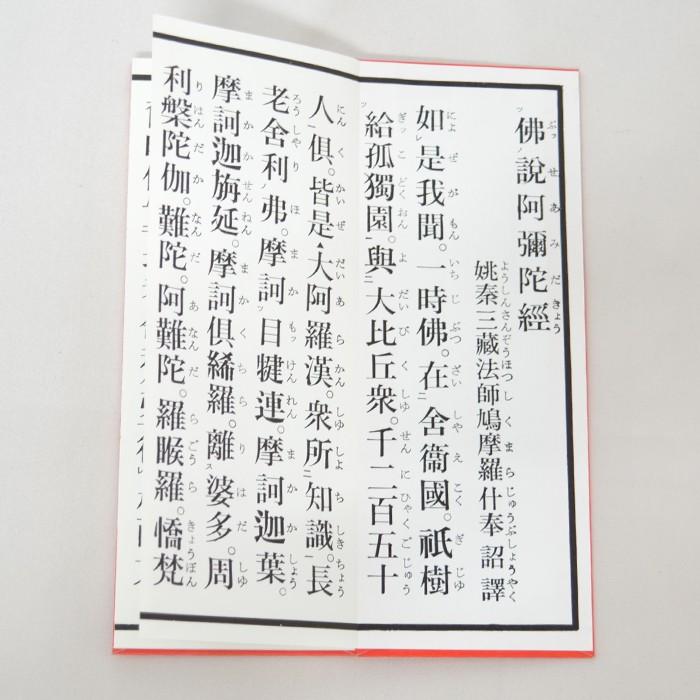 佛說阿彌陀經
姚秦三藏法師鳩摩羅什奉詔譯
如是我聞。一時佛。在舍衞國。祇樹
給孤獨園。與大比丘衆。千二百五十
人俱。皆是大阿羅漢。衆所知識。長
老舍利弗。摩訶目犍連。摩訶迦葉。
摩訶迦旃延。摩訶俱絺羅。離婆多。周
利槃陀伽。難陀。阿難陀。羅睺羅。憍梵